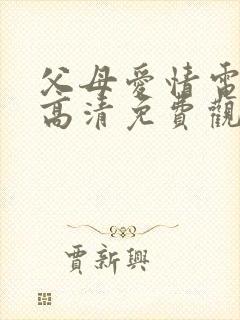 父母愛情電
高清免費觀
賈新興